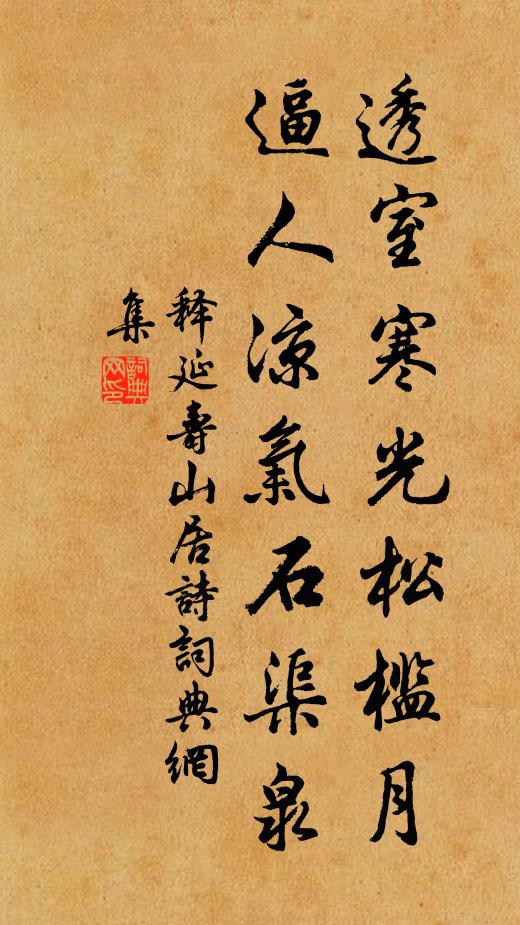 透室寒光松槛月
逼人凉氣石渠泉
释延壽山居詩詞典網
集
詞典
网印